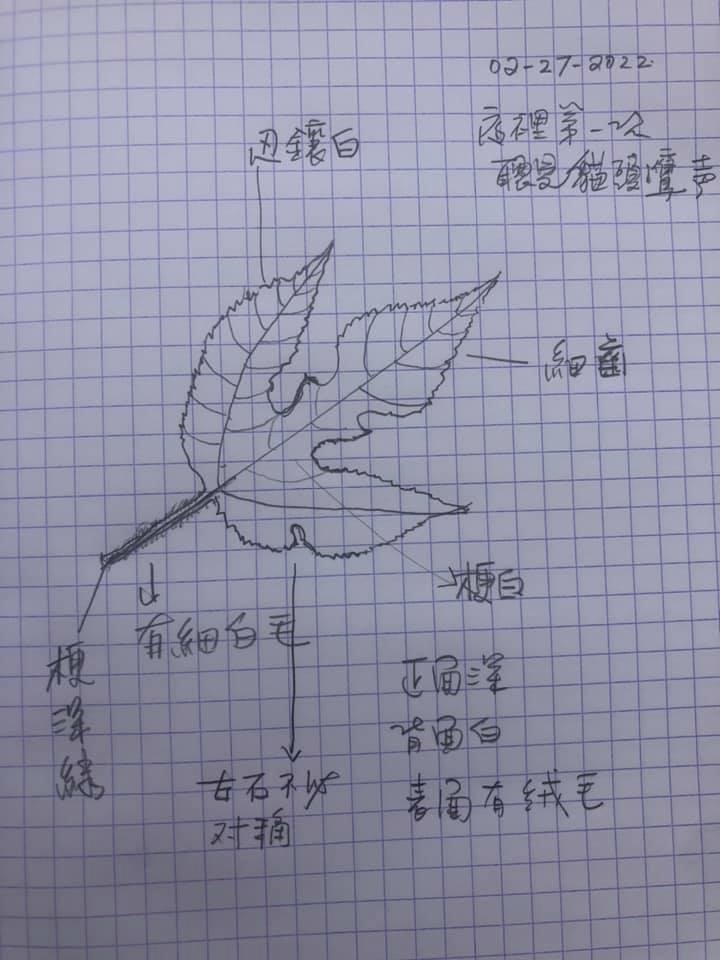 02-27-2022
裡第一次
聽見貓頭鷹声
边鑲白
細齒
梗白
有細白毛
梗深綠
正面深
背面白
表面有絨毛
左右不
对稱